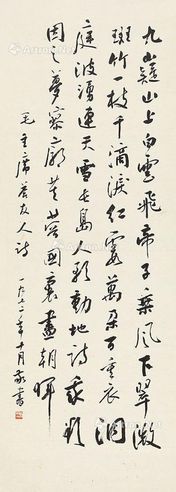 九嶷山上白雲飛帝子乘風下翠微
斑竹一枝千滴淚紅霞萬朵百重衣洞
庭波湧連天雪長島人歌動地詩我欲
因之夢寥廓芙蓉國裏盡朝暉
毛主席答友人詩
一九七二年十月敬書